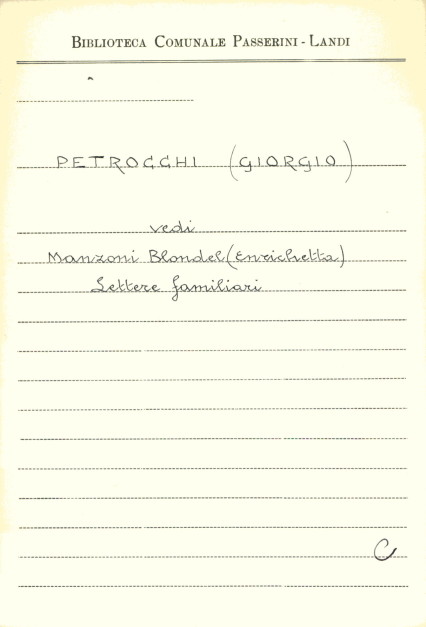 BIBLIOTECA COMUNALE PASSERINI - LANDI
PETROCCHI (GIORGIO)
vedi
Manzoni Blondel (Enrichetta)
Lettere familiari
C